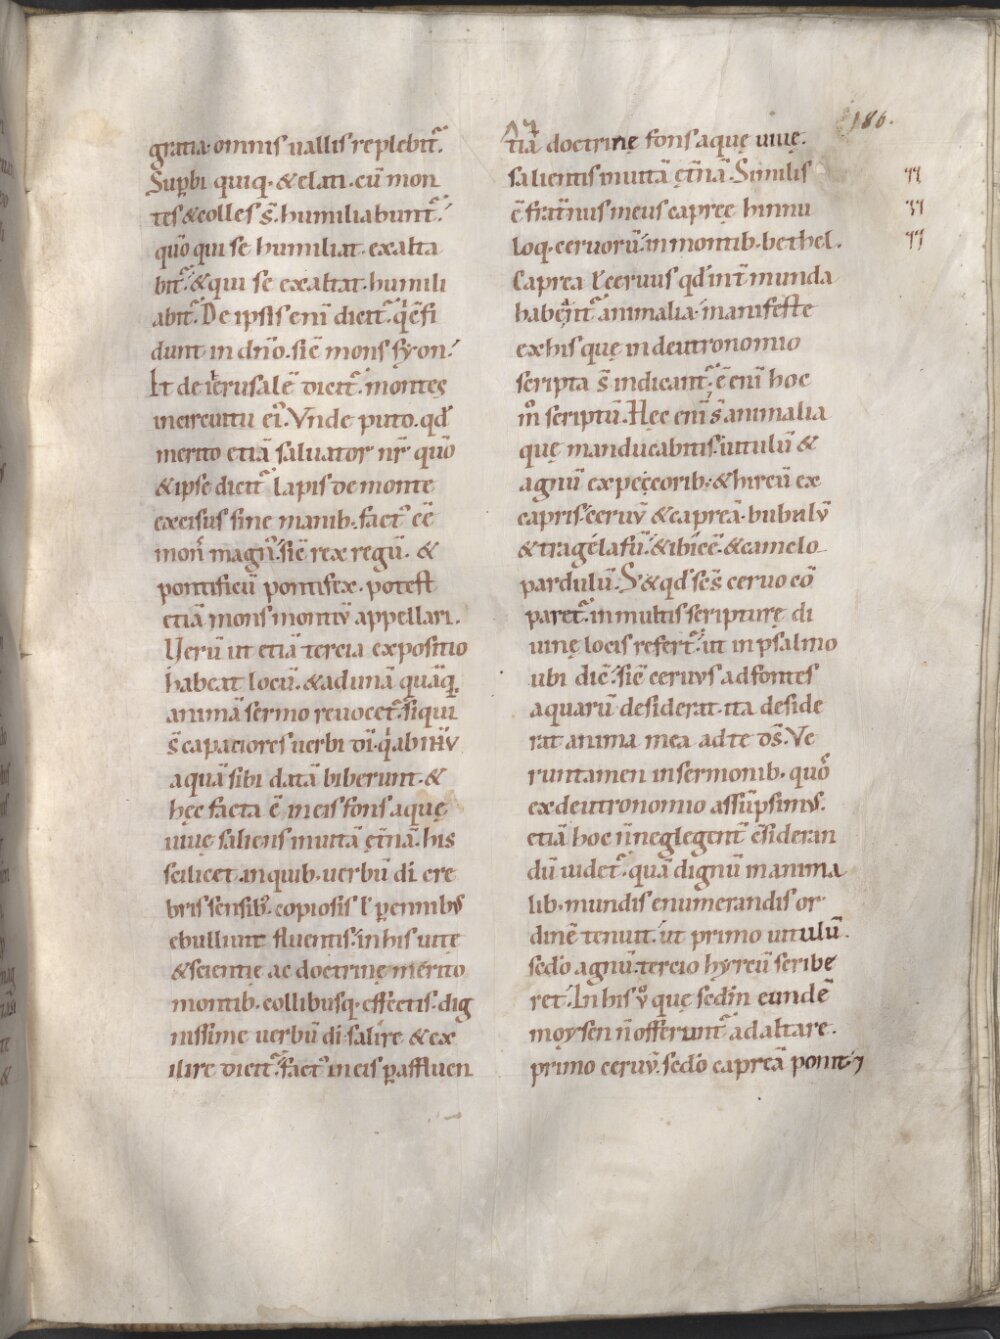 186.
gratia. omnis uallis replebit᷑.
Supbi quiq. & elati. cū mon
tes & colles s̄. humiliabunt᷑.
quō qui se humiliat. exalta
bit᷑. & qui se exaltat. humili
abit᷑. De ipsis enī dicit᷑. q̍ cfi
dunt in dn̄o. sic̄ mons syon.
It de ierusalē dicit᷑. montes
in circuitu eiꝰ. Vnde puto. qd̄
merito etiā saluator nr̄ quō
& ipse dicit᷑ lapis de monte
excisus sine manib. factꝰ eē
mons magnꝰ. sic̄ rex regū. &
pontificū pontifex. potest
etiā mons montiū appellari.
Uerū ut etiā tercia expositio
habeat locū. & ad unā quāq̨
animā sermo reuocet᷑. siqui
s̄ capaciores uerbi dī. q̍ ab ihv̄
aquā sibi datā biberunt. &
hęc facta ē in eis fons aquę
uiuę saliens in uitā ęt̄nā. his
scilicet. in quib. uerbū dī cre
bris sensibꝰ. copiosis ł perennibꝰ
ebulliuit fluentis. in his uitę
& scientię ac doctrinę merito
montib. collibusq. effectis. dig
nissime uerbū dī salire & ex
ilire dicit᷑. factꝰ in eis p affluen
tiā doctrinę fons aquę uiuę.
salientis in uitā ęt̄nā. Similis
ē frat̄nus meus capreę hinnu
loq. ceruorū. in montib. bethel.
Caprea ł ceruus qd̄ int̄ munda
habent᷑ animalia. manifeste
ex his quę in deutronomio
scripta s̄ indicant᷑. ē enī hoc
m̊ scriptū. Hęc enī s̄ animalia
quę manducabitis. uitulū &
agnū ex peccorib. & hircū ex
capris. ceruū & capreā. bubalū
& tragelafū. & ibicē. & camelo
pardulū. S & qd̄ ses̄ ceruo cō
paret᷑. in multis scripturę di
uinę locis refert᷑. ut in psalmo
ubi dic̄. sic̄ ceruus ad fontes
aquarū desiderat. ita deside
rat anima mea ad te ds̄. Ve
runtamen in sermonib. quos
ex deutronomio assūpsimꝰ.
etiā hoc n̄ neglegent̄ c̄sideran
dū uidet᷑. quā dignū in anima
lib. mundis enumerandis or
dinē tenuit. ut primo uitulū.
sedo agnū. tercio hyrcū scribe
ret. In his ů quę sedm̄ eundē
moysen n̄ offerunt᷑ ad altare.
primo ceruū. sedo capreā ponit. ⁊